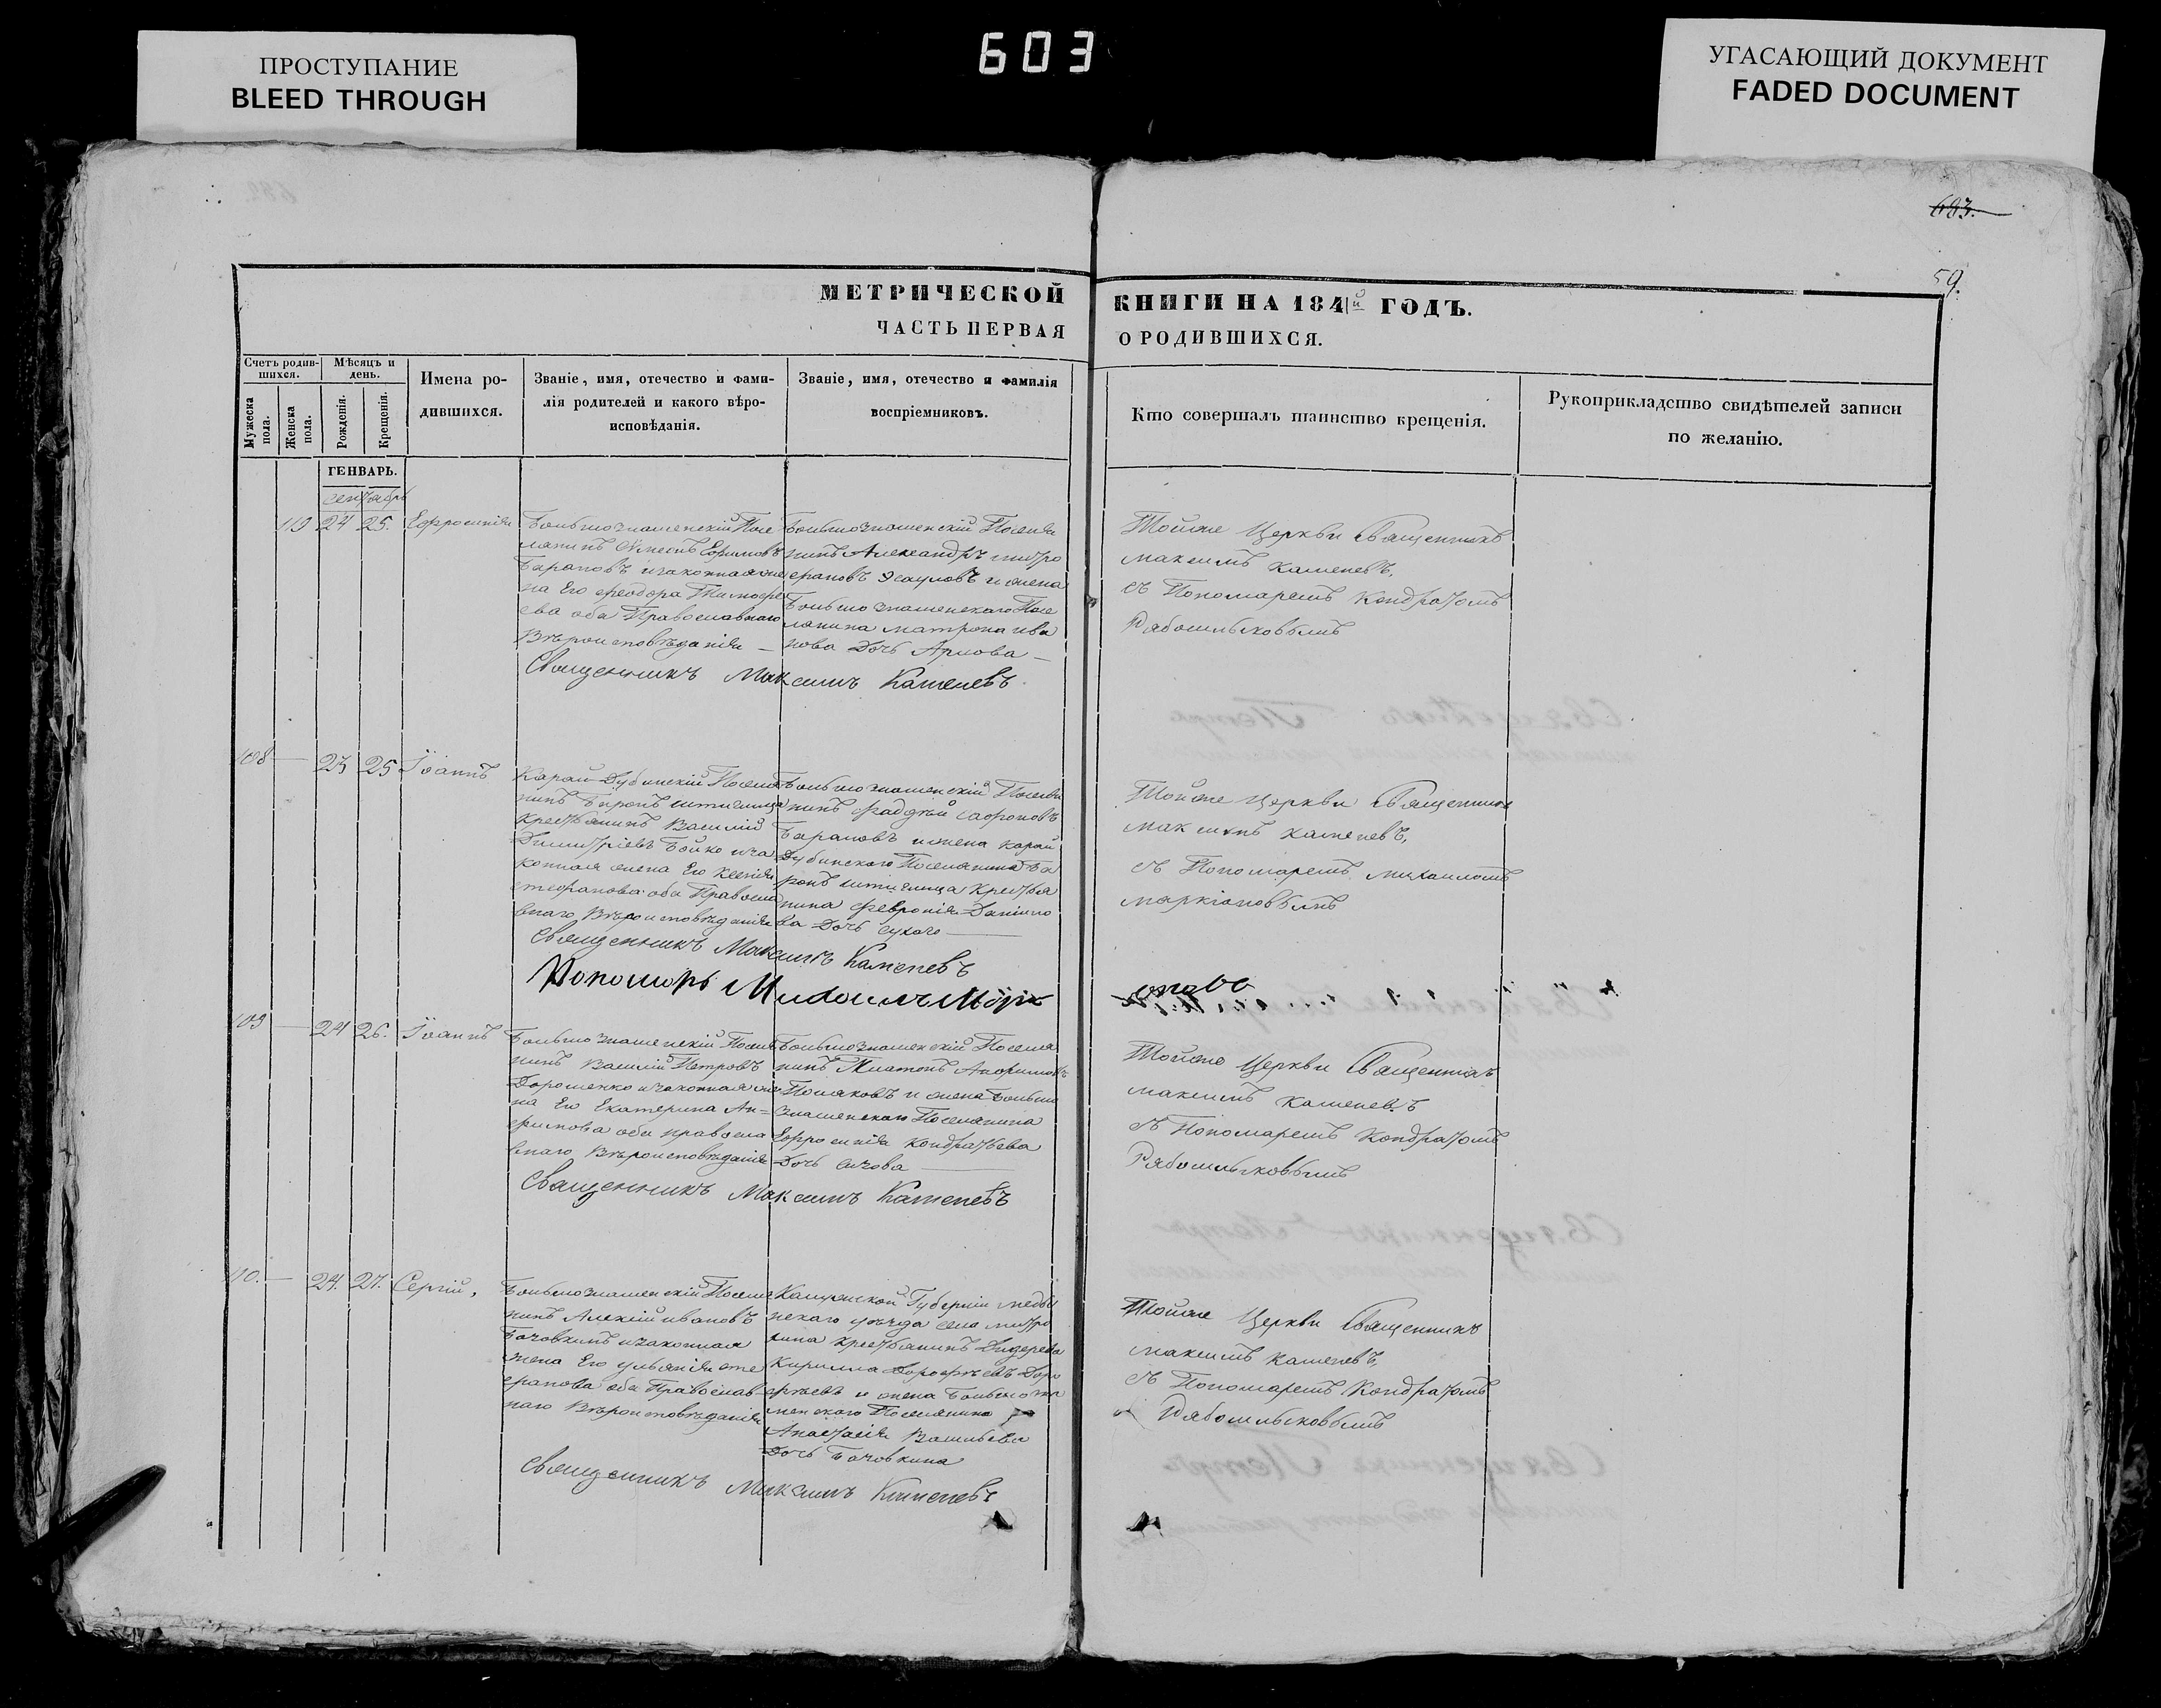 ПРОСТУПАНИЕ
BLEED THROUGH
603
УГАСАЮЩИЙ ДОКУМЕНТ
FADED DOCUMENT
683.
59.
МЕТРИЧЕСКОЙ
ЧАСТЬ ПЕРВАЯ
КНИГИ НА 1841й ГОДЪ.
О РОДИВШИХСЯ.
Счетъ родив-
шихся.
Мужеска пола.
Женска пола.
Мѣсяцъ и
день.
Рожденія.
Крещенія.
Имена ро-
дившихся.
Званіе, имя, отечество и фами-
лія родителей и какого вѣро-
исповѣданія.
Званіе, имя, отечество и фамилія
воспріемниковъ.
Кто совершалъ таинство крещенія.
Рукоприкладство свидѣтелей записи
по желанію.
ГЕНВАРЬ.
сентябрь
24 25. Ефросинія
Большознаменскій Посе
лянинъ Ефимовъ
Барановъ и законная же
на Его Феодора Тимофе
ева оба Православнаго
Вѣроисповѣданія —
Большознаменскій Поселя
нинъ Александръ митро
фановъ Эсауловъ и жена
Большознаменскаго Посе
лянина матрона ива
нова Дочь
Тойже Церкви Священникъ
максимъ каменевъ,
съ Пономаремъ Кондратомъ
Рябошлыковымъ
Священникъ Максимъ Каменевъ
108 — 23 25 Іоаннъ
Карай-Дубинскій Поселя
нинъ Баронъ штиглица
крестьянинъ Василій
Димитріевъ Бойко и за
конная жена Его ксенія
стефанова оба Правосла
внаго Вѣроисповѣданія
Большознаменскій Поселя
нинъ Фаддѣй сафоновъ
Барановъ и жена карай
Дубинскаго Поселянина Ба
ронъ штиглица крестья
нина Февронія Данило
ва Дочь сухаго —
Тойже Церкви Священникъ
максимъ каменевъ,
съ Пономаремъ михаиломъ
маркіановымъ
Священникъ Максимъ Каменевъ
Пономарь Михаилъ Марк
109 — 24 26. Іоаннъ
Большознаменскій Поселя
нинъ Василій Петровъ
Дорошенко и законная же
на Его Екатерина Ан=
фимова оба правосла
внаго Вѣроисповѣданія
Большознаменскій Поселя
нинъ Платонъ
Поляковъ и жена Больше
знаменскаго Поселянина
Ефросинія кондратьева
Дочь сычова —
Тойже Церкви Священникъ
максимъ каменевъ
съ Пономаремъ Кондратомъ
Рябошлыковымъ
Священникъ Максимъ Каменевъ
110. — 24. 27. Сергій,
Большознаменскій Поселя
нинъ Алексій ивановъ
Бочовкинъ и законная
жена Его ульянія сте
фанова оба Православ-
наго Вѣроисповѣданія
Калужской Губерніи медын
скаго уѣзда села митро
крестьянинъ
Кирилла Дорофѣевъ Доро
фѣевъ и жена Большозна
менскаго Поселянина
Анастасія Васильева
Дочь Бочовкина
Тойже Церкви Священникъ
максимъ каменевъ,
съ Пономаремъ Кондратомъ
Рябошлыковымъ
Священникъ Максимъ Каменевъ